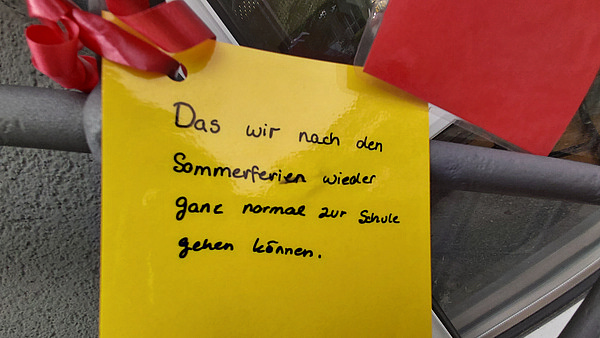 Das wir nach den
Sommerferien wieder
ganz normal zur Schule
gehen können.